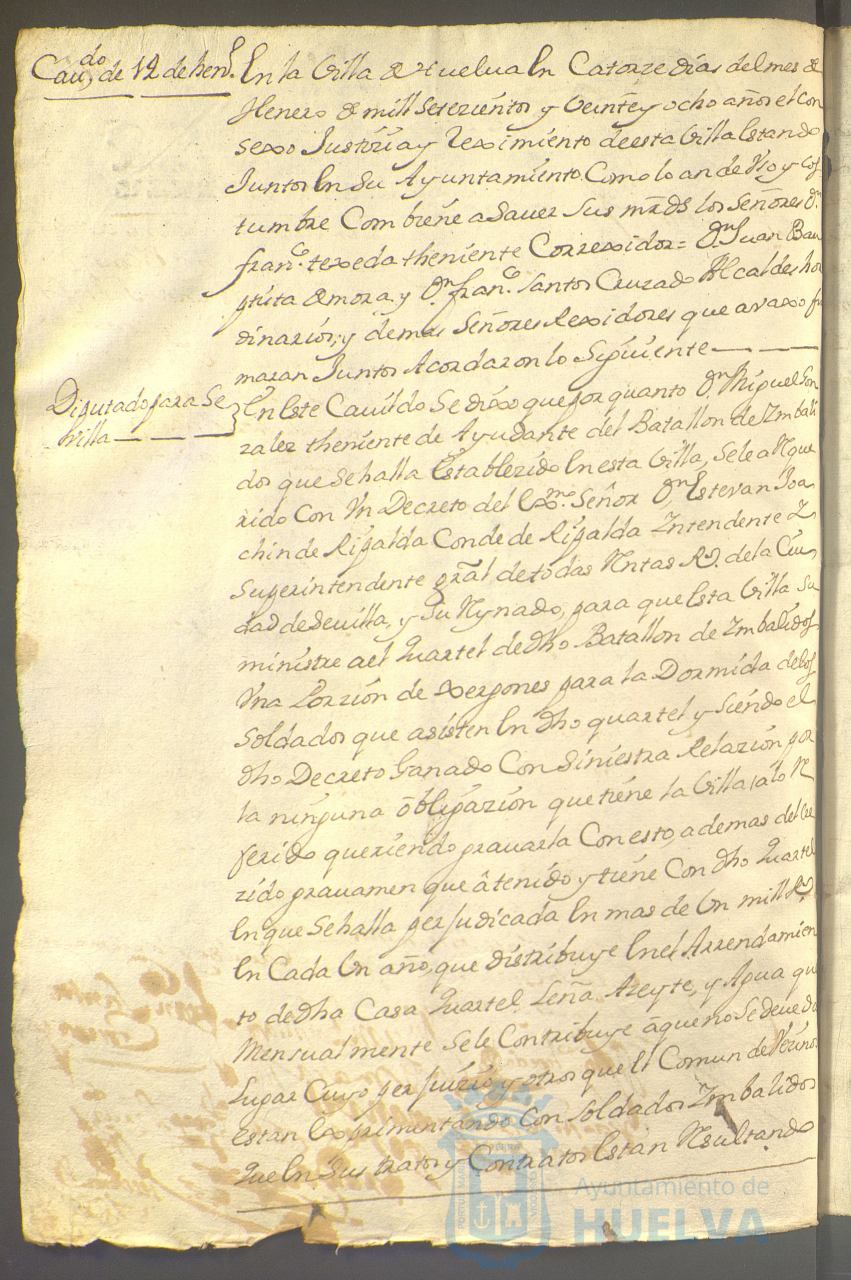 Cau.do de 12 de hen.o
En la Villa de Huelua En Catorze días del mes de
Henero de mill Setezientos y Veinte y ocho años el con
sexo Justizia y Reximiento de esta Villa Estando
Juntos En Su Ayuntamiento Como lo an de Vso y cos
tumbre Combiene a Sauer Sus mrds los Señores Dn
fran.co texeda theniente Correxidor = Dn Juan Bau
ptista de mora y Dn fran.co Santos Cruzado Alcaldes hor
dinarios, y demas Señores Rexidores que avaxo fir
maran Juntos Acordaron lo Siguiente
Diputado para Se
billa
En Este Cauildo Se dixo que por quanto Dn Miguel Gon
zalez theniente de Ayudante del Batallon de Ymbali
dos que Sehalla Establezido En esta Villa, Sele a Reque
rido Con Vn Decreto del Exmo Señor Dn Estevan Joa
chin de Ripalda Conde de Ripalda Yntendente
Superintendente gral de todas Rentas Rs. dela Ciu
dad de Seuilla, y Su Reynado, para que Esta Villa Su
ministre a el Quartel de dho Batallon de Ymbalidos
Vna Porzion de xergones para la Dormida delos
Soldados que asisten En dho quartel y Siendo el
dho Decreto Ganado Con Siniestra Relazion por
la ninguna obligazion que tiene la Villa a lo Re
ferido queriendo grauarla Con esto, a demas del cre
zido grauamen que a tenido y tiene Con dho Quartel
En que Sehalla perjudicada En mas de Vn mill Rs
En Cada Vn año, que distribuye En el Arrendamien
to de dha Casa Quartel Leña Azeyte, y Agua que
Mensualmente Sele Contribuye a que no Se deue dar
Lugar Cuyo perjuizio, y otros que el Comun de Vezinos
estan Exprimentando Con Soldados Ymbalidos
que En Sus tratos y Contratos Estan Resultando
Ayuntamiento de
HUELVA